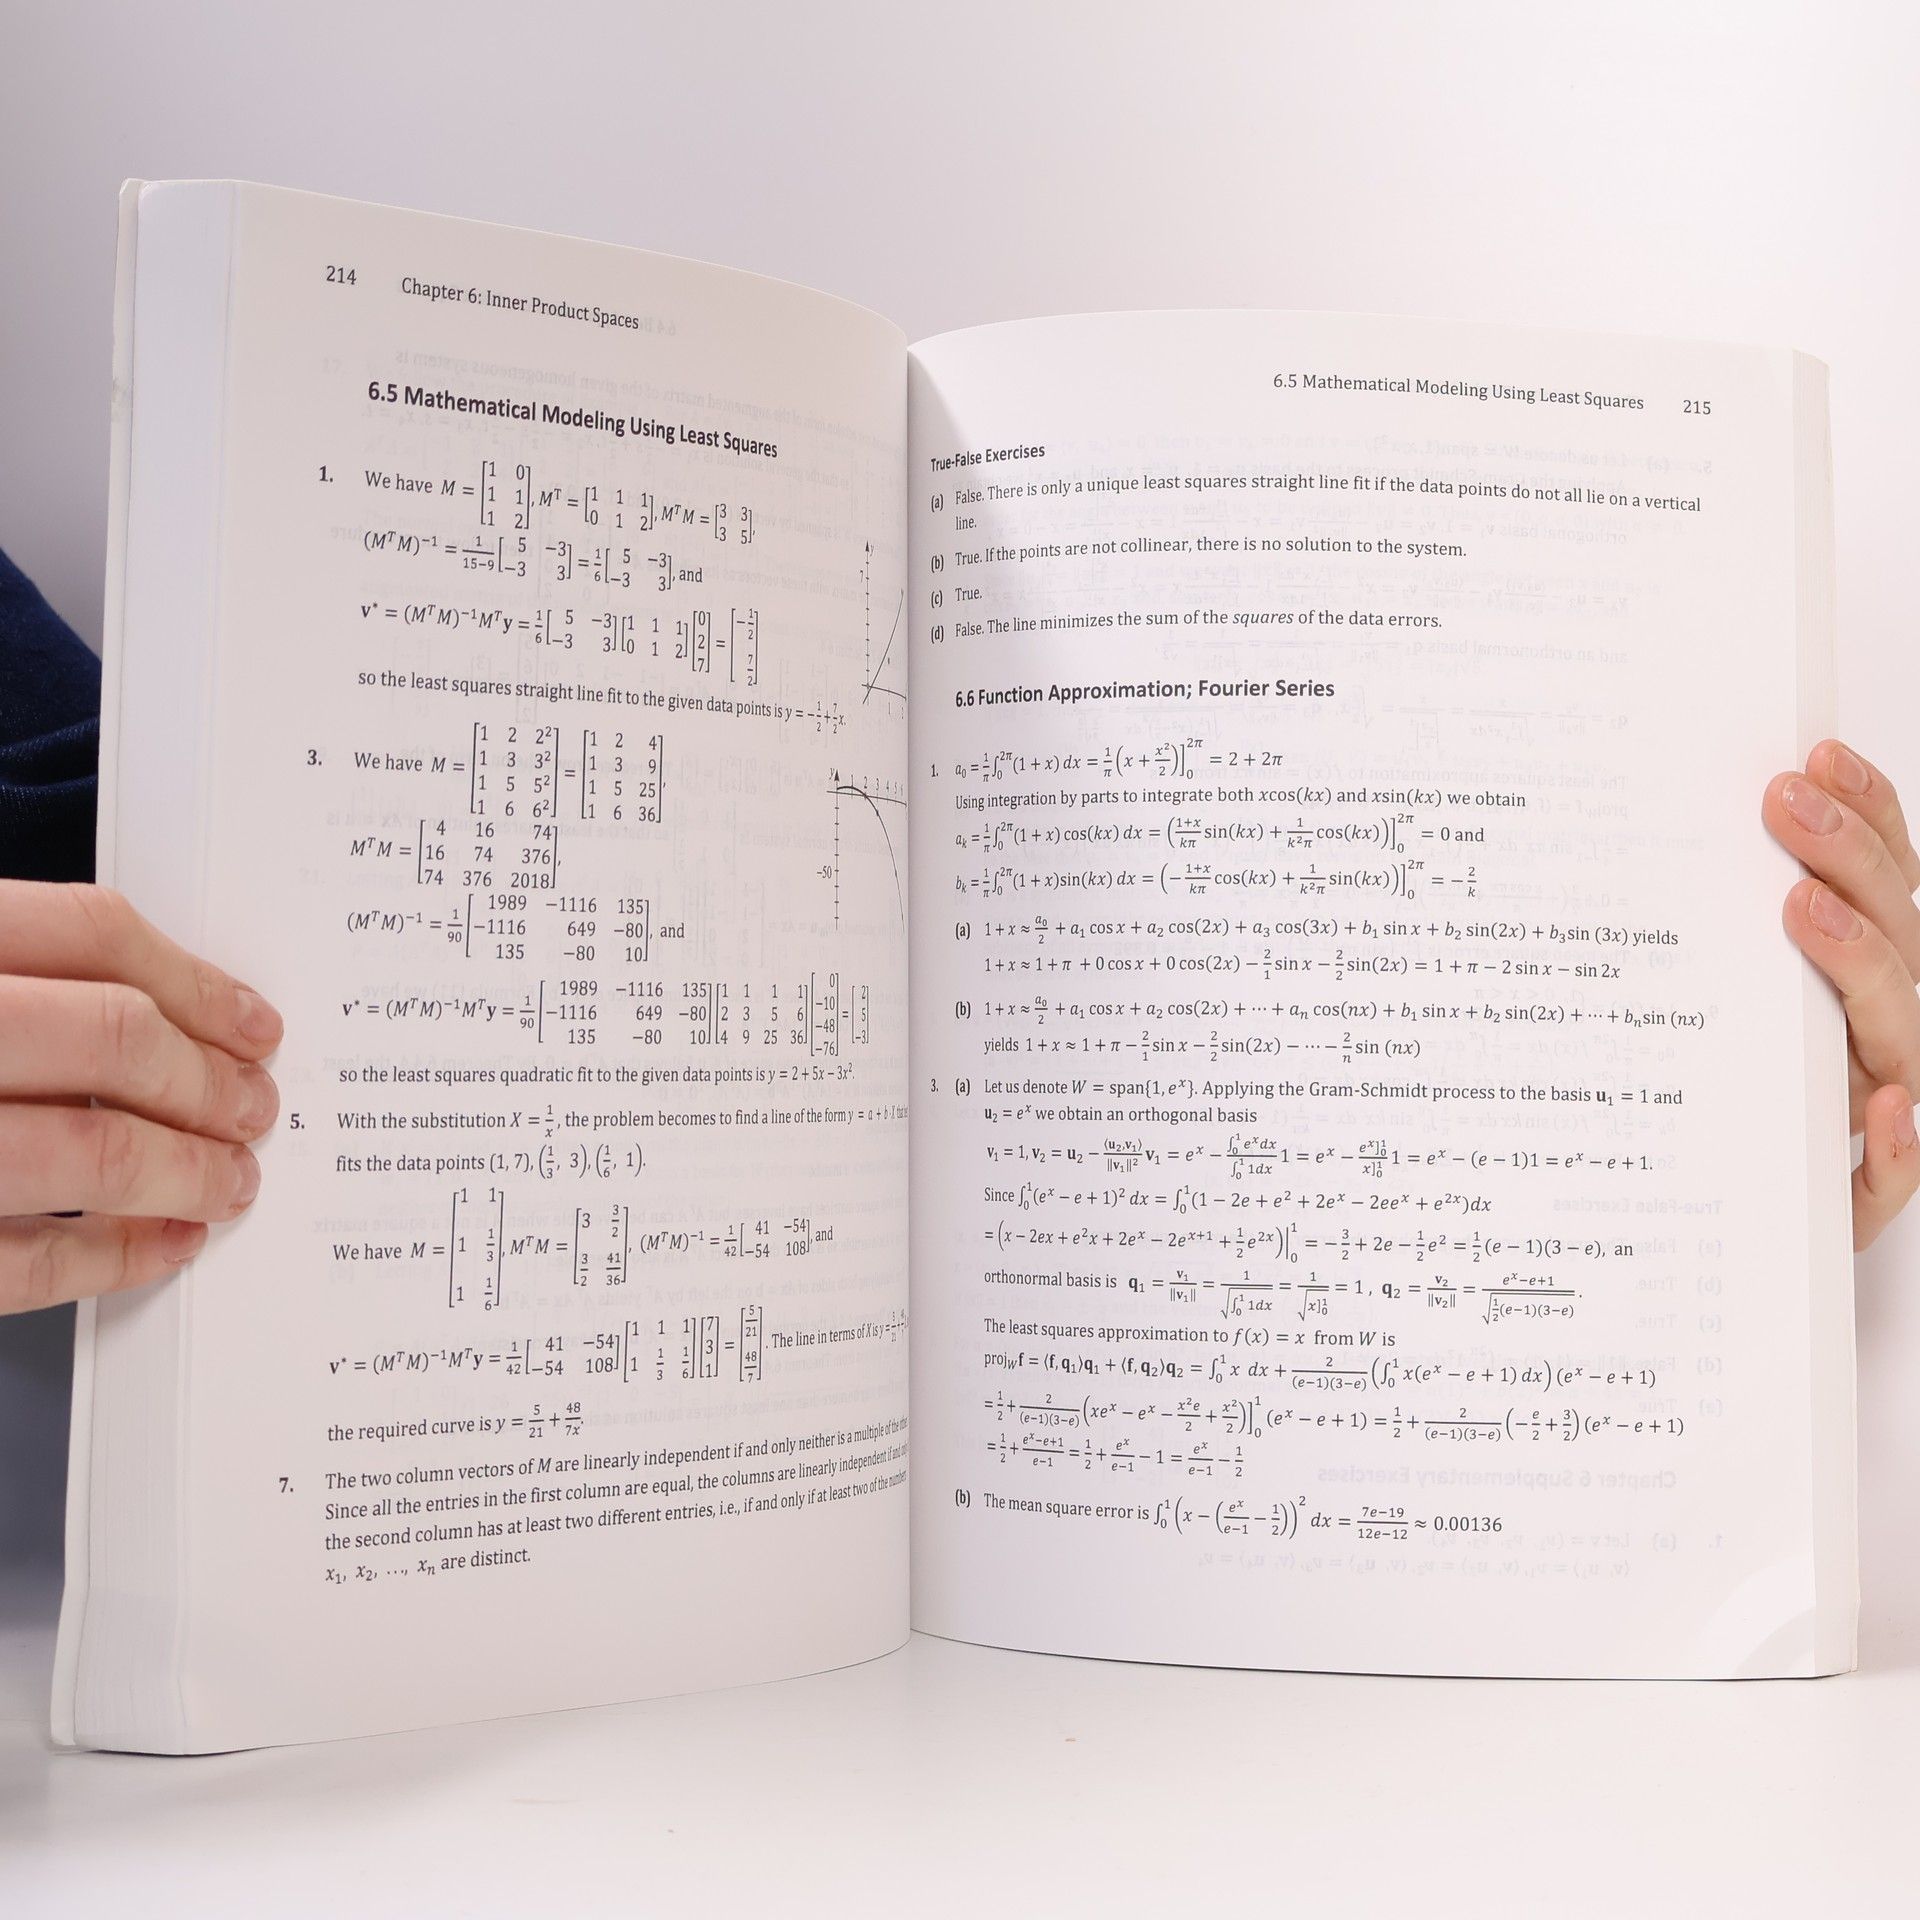 214 Chapter 6: Inner Product Spaces
6.5 Mathematical Modeling Using Least Squares
1. We have M = [1 0; 1 1; 1 2], Mᵀ = [1 1 1; 0 1 2], MᵀM = [3 3; 3 5],
(MᵀM)⁻¹ = 1/(15−9) [5 −3; −3 3] = 1/6 [5 −3; −3 3], and
v* = (MᵀM)⁻¹Mᵀy = 1/6 [5 −3; −3 3] [1 1 1; 0 1 2] [0; 2; 7] = [−1/2; 7/2]
so the least squares straight line fit to the given data points is y = −1/2 + 7/2 x.
3. We have M = [1 2 2²; 1 3 3²; 1 5 5²; 1 6 6²] = [1 2 4; 1 3 9; 1 5 25; 1 6 36],
MᵀM = [4 16 74; 16 74 376; 74 376 2018],
(MᵀM)⁻¹ = 1/90 [1989 −1116 135; −1116 649 −80; 135 −80 10], and
v* = (MᵀM)⁻¹Mᵀy = 1/90 [1989 −1116 135; −1116 649 −80; 135 −80 10] [1 1 1 1; 2 3 5 6; 4 9 25 36] [0; −10; −48; −76] = [2; 5; −3]
so the least squares quadratic fit to the given data points is y = 2 + 5x − 3x².
5. With the substitution X = 1/x, the problem becomes to find a line of the form y = a + b · X that
fits the data points (1, 7), (1/3, 3), (1/6, 1).
We have M = [1 1; 1 1/3; 1 1/6], MᵀM = [3 3/2; 3/2 41/36], (MᵀM)⁻¹ = 1/42 [41 −54; −54 108], and
v* = (MᵀM)⁻¹Mᵀy = 1/42 [41 −54; −54 108] [1 1 1; 1 1/3 1/6] [7; 3; 1] = [5/21; 48/7]. The line in terms of X is y = 5/21 +
the required curve is y = 5/21 + 48/7x.
7. The two column vectors of M are linearly independent if and only neither is a multiple of the other
Since all the entries in the first column are equal, the columns are linearly independent if and only
the second column has at least two different entries, i.e., if and only if at least two of the numbers
x₁, x₂, …, xₙ are distinct.
y
7
1
y
1 2 3 4 5 6
−50
6.5 Mathematical Modeling Using Least Squares 215
True-False Exercises
(a) False. There is only a unique least squares straight line fit if the data points do not all lie on a vertical
line.
(b) True. If the points are not collinear, there is no solution to the system.
(c) True.
(d) False. The line minimizes the sum of the squares of the data errors.
6.6 Function Approximation; Fourier Series
1. a₀ = 1/π ∫₀^2π (1 + x) dx = 1/π (x + x²/2)]₀^2π = 2 + 2π
Using integration by parts to integrate both xcos(kx) and xsin(kx) we obtain
aₖ = 1/π ∫₀^2π (1 + x) cos(kx) dx = ((1+x)/kπ sin(kx) + 1/k²π cos(kx))]₀^2π = 0 and
bₖ = 1/π ∫₀^2π (1 + x)sin(kx) dx = (−(1+x)/kπ cos(kx) + 1/k²π sin(kx))]₀^2π = −2/k
(a) 1 + x ≈ a₀/2 + a₁ cos x + a₂ cos(2x) + a₃ cos(3x) + b₁ sin x + b₂ sin(2x) + b₃sin (3x) yields
1 + x ≈ 1 + π + 0 cos x + 0 cos(2x) − 2/1 sin x − 2/2 sin(2x) = 1 + π − 2 sin x − sin 2x
(b) 1 + x ≈ a₀/2 + a₁ cos x + a₂ cos(2x) + ⋯ + aₙ cos(nx) + b₁ sin x + b₂ sin(2x) + ⋯ + bₙsin (nx)
yields 1 + x ≈ 1 + π − 2/1 sin x − 2/2 sin(2x) − ⋯ − 2/n sin (nx)
3. (a) Let us denote W = span{1, eˣ}. Applying the Gram-Schmidt process to the basis u₁ = 1 and
u₂ = eˣ we obtain an orthogonal basis
v₁ = 1, v₂ = u₂ − ⟨u₂,v₁⟩/‖v₁‖² v₁ = eˣ − ∫₀¹ eˣdx/∫₀¹ 1dx 1 = eˣ − eˣ]₀¹/x]₀¹ 1 = eˣ − (e − 1)1 = eˣ − e + 1.
Since ∫₀¹(eˣ − e + 1)² dx = ∫₀¹(1 − 2e + e² + 2eˣ − 2eeˣ + e²ˣ)dx
= (x − 2ex + e²x + 2eˣ − 2eˣ⁺¹ + 1/2 e²ˣ)]₀¹ = −3/2 + 2e − 1/2 e² = 1/2 (e − 1)(3 − e), an
orthonormal basis is q₁ = v₁/‖v₁‖ = 1/√(∫₀¹ 1dx) = 1/√(x]₀¹) = 1, q₂ = v₂/‖v₂‖ = (eˣ−e+1)/√(1/2(e−1)(3−e)).
The least squares approximation to f(x) = x from W is
proj_W f = ⟨f, q₁⟩q₁ + ⟨f, q₂⟩q₂ = ∫₀¹ x dx + 2/((e−1)(3−e)) (∫₀¹ x(eˣ − e + 1) dx) (eˣ − e + 1)
= 1/2 + 2/((e−1)(3−e)) (xeˣ − eˣ − x²e/2 + x²/2)]₀¹ (eˣ − e + 1) = 1/2 + 2/((e−1)(3−e)) (−e/2 + 3/2) (eˣ − e + 1)
= 1/2 + (eˣ−e+1)/(e−1) = 1/2 + eˣ/(e−1) − 1 = eˣ/(e−1) − 1/2
(b) The mean square error is ∫₀¹ (x − (eˣ/(e−1) − 1/2))² dx = (7e−19)/(12e−12) ≈ 0.00136